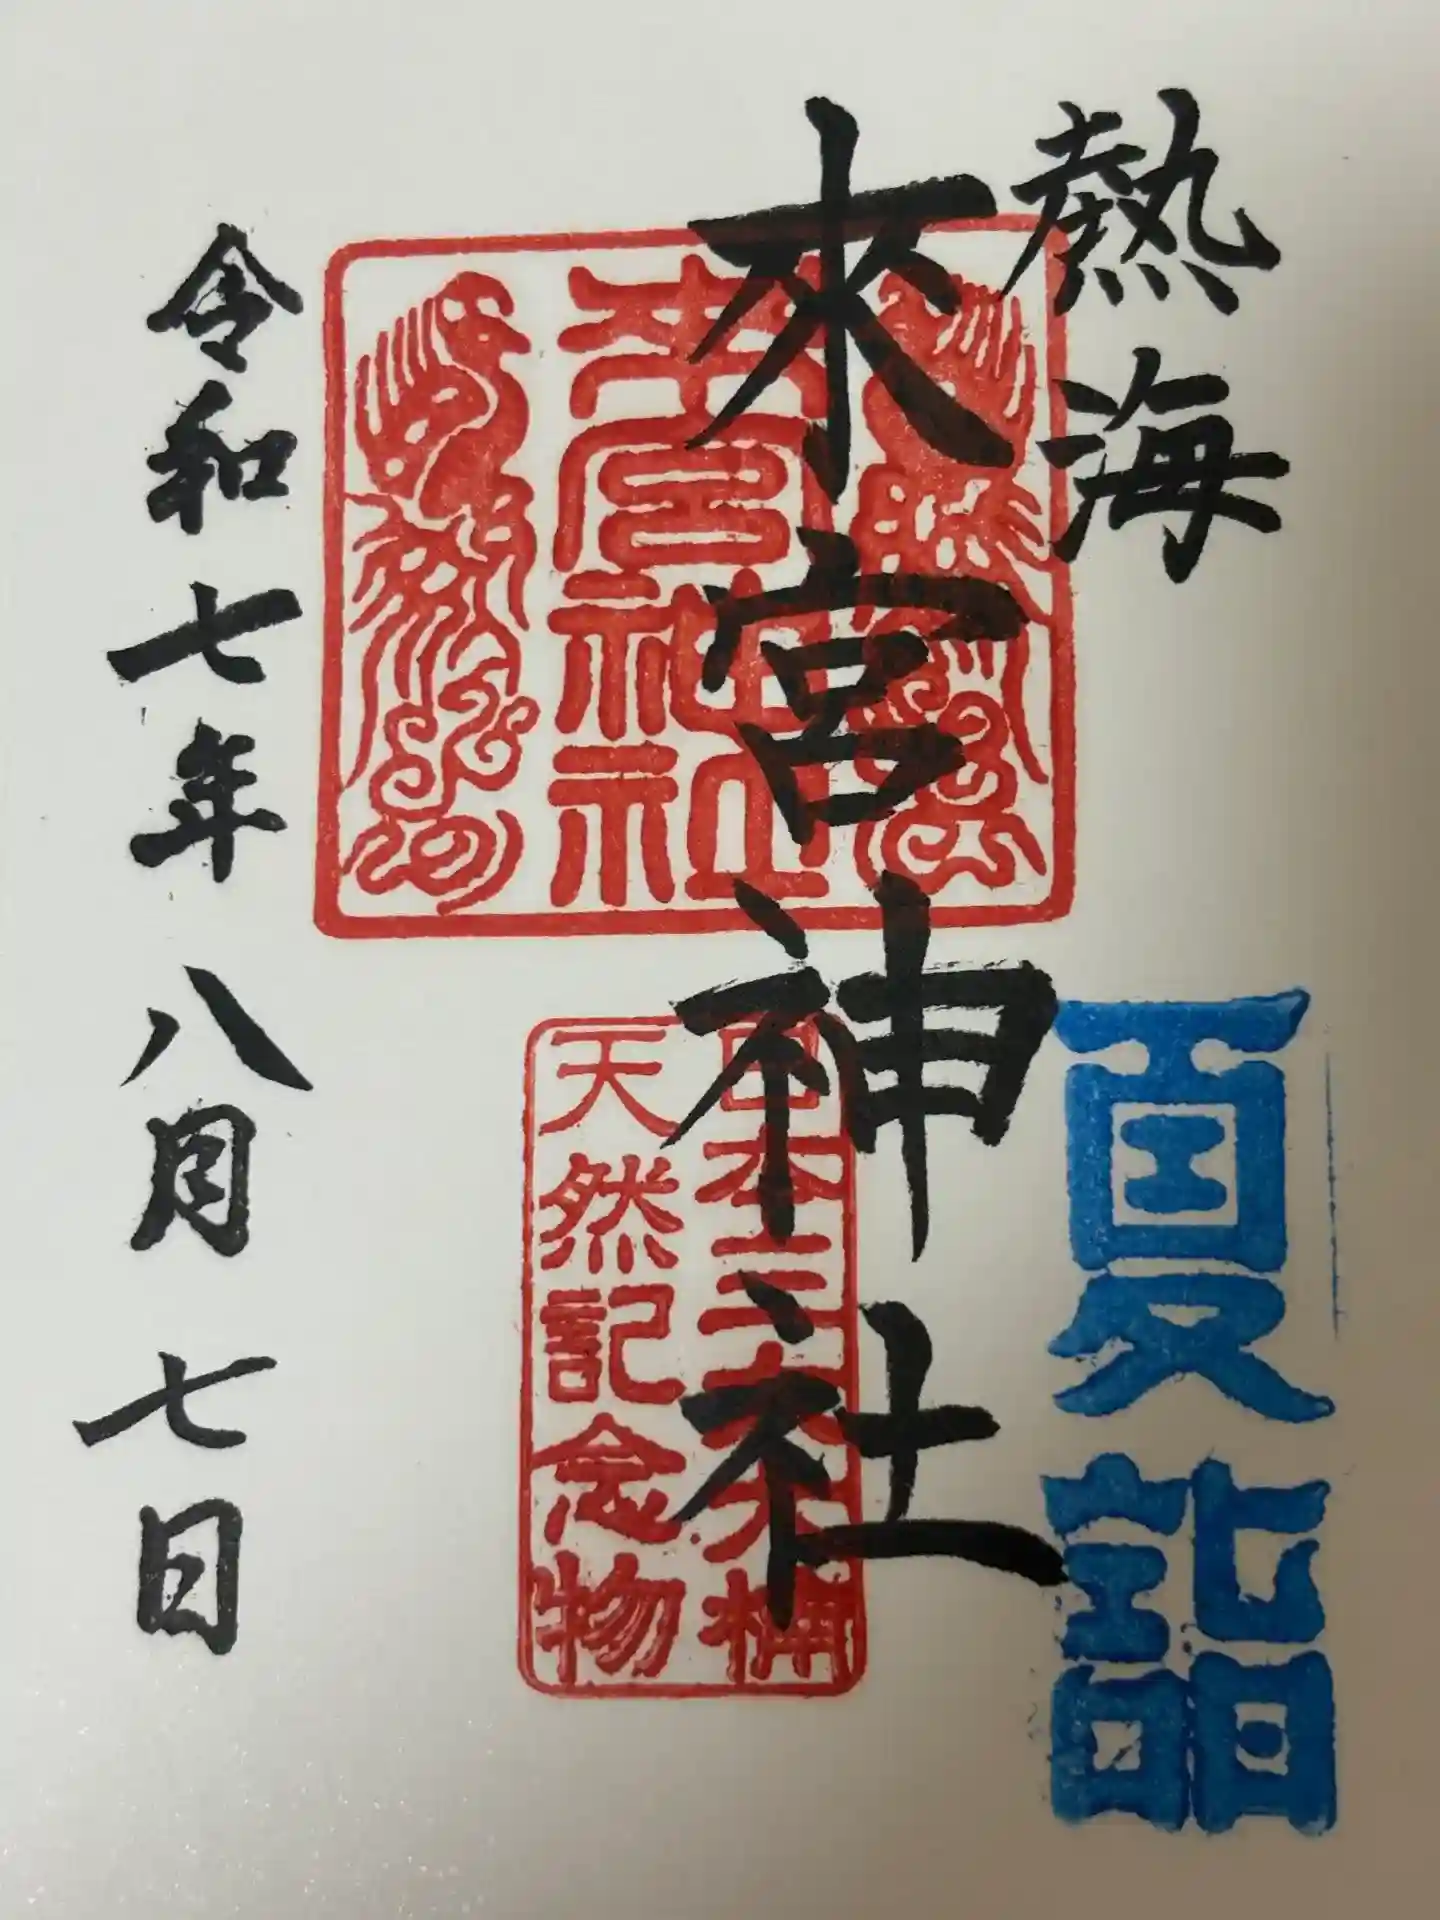 熱海
來宮神社
夏詣
來宮神社
日本三大楠
天然記念物
令和七年八月七日